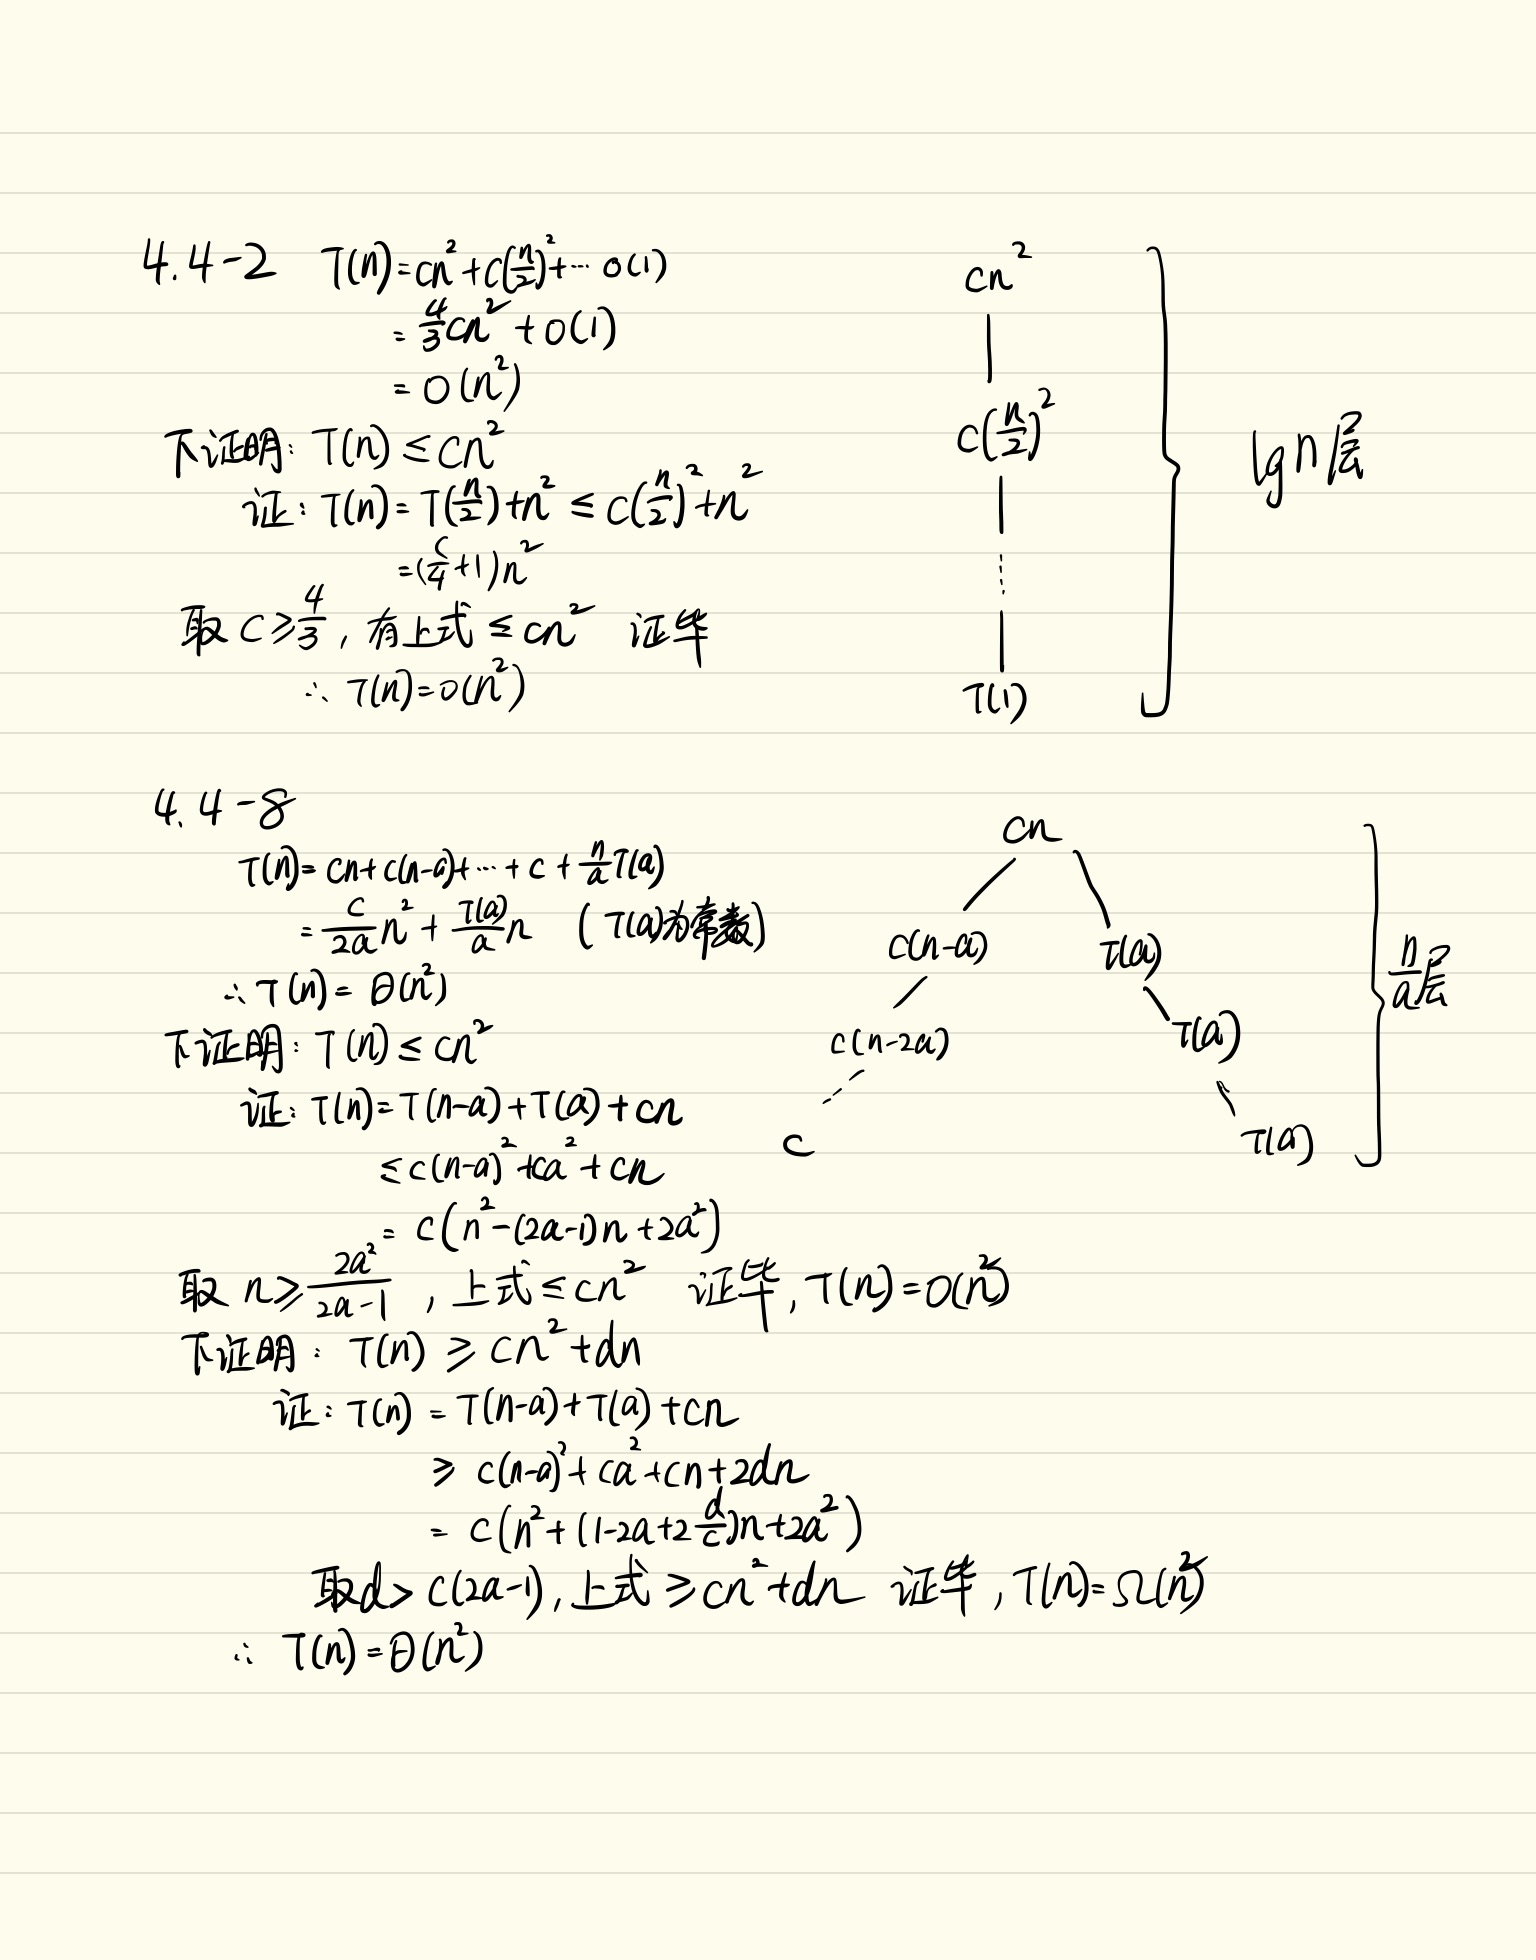 4.4-2 T(n)=cn²+c(n/2)²+…O(1)
=4/3cn²+O(1)
=O(n²)
下证明:T(n)≤cn²
证:T(n)=T(n/2)+n²≤c(n/2)²+n²
=(c/4+1)n²
取c≥4/3,有上式≤cn² 证毕
∴T(n)=O(n²)
cn²
c(n/2)²
T(1)
lgn层
4.4-8
T(n)=cn+c(n-a)+…+c+n/aT(a)
=c/2a n²+T(a)/a n (T(a)为常数)
∴T(n)=θ(n²)
下证明:T(n)≤cn²
证:T(n)=T(n-a)+T(a)+cn
≤c(n-a)²+ca²+cn
=c(n²-(2a-1)n+2a²)
取n≥2a²/2a-1,上式≤cn² 证毕,T(n)=O(n²)
下证明:T(n)≥cn²+dn
证:T(n)=T(n-a)+T(a)+cn
≥c(n-a)²+ca²+cn+2dn
=c(n²+(1-2a+2d/c)n+2a²)
取d>c(2a-1),上式≥cn²+dn 证毕,T(n)=Ω(n²)
∴T(n)=θ(n²)
cn
c(n-a) T(a)
c(n-2a) T(a)
c T(a)
n/a层